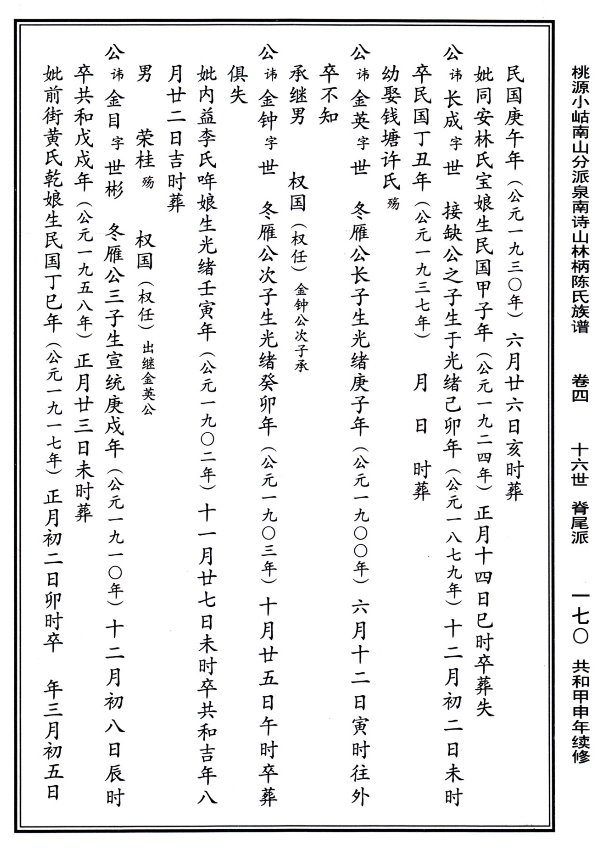 桃源小岵南山分派泉南诗山林柄陈氏族谱 卷四 十六世 脊尾派 一七〇 共和甲申年续修
民国庚午年（公元一九三〇年）六月廿六日亥时葬
妣同安林氏宝娘生民国甲子年（公元一九二四年）正月十四日巳时卒葬失
公讳长成字世 接缺公之子生于光绪己卯年（公元一八七九年）十二月初二日未时
卒民国丁丑年（公元一九三七年） 月 日 时葬
幼娶钱塘许氏殇
公讳金英字世 冬雁公长子生光绪庚子年（公元一九〇〇年）六月十二日寅时往外
卒不知
承继男 权国（权任）金钟公次子承
公讳金钟字世 冬雁公次子生光绪癸卯年（公元一九〇三年）十月廿五日午时卒葬
俱失
妣内益李氏哖娘生光绪壬寅年（公元一九〇二年）十一月廿七日未时卒共和吉年八
月廿二日吉时葬
男 荣桂殇 权国（权任）出继金英公
公讳金目字世彬 冬雁公三子生宣统庚戌年（公元一九一〇年）十二月初八日辰时
卒共和戊戌年（公元一九五八年）正月廿三日未时葬
妣前街黄氏乾娘生民国丁巳年（公元一九一七年）正月初二日卯时卒 年三月初五日